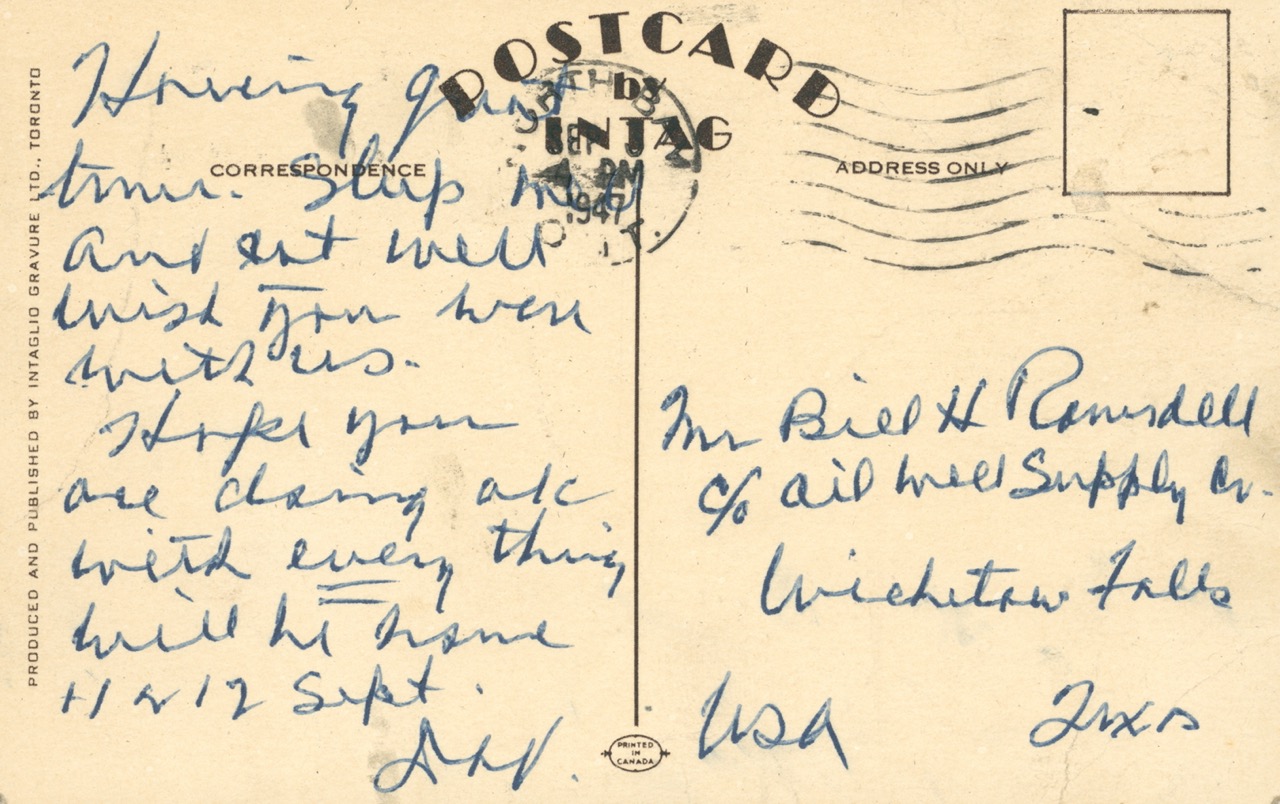 POSTCARD
by
INTAG
CORRESPONDENCE
ADDRESS ONLY
PRODUCED AND PUBLISHED BY INTAGLIO GRAVURE LTD., TORONTO
NORTH BAY
SEP
4 PM
1947
ONT.
Having great
time. Sleep well
and eat well
wish you were
with us.
Hope you
are doing ok
with every thing
will be home
11 or 12 Sept.
Mr Bill H Ramsdell
c/o Oil Well Supply Co.
Wichitaw Falls
USA Texas
PRINTED
IN
CANADA